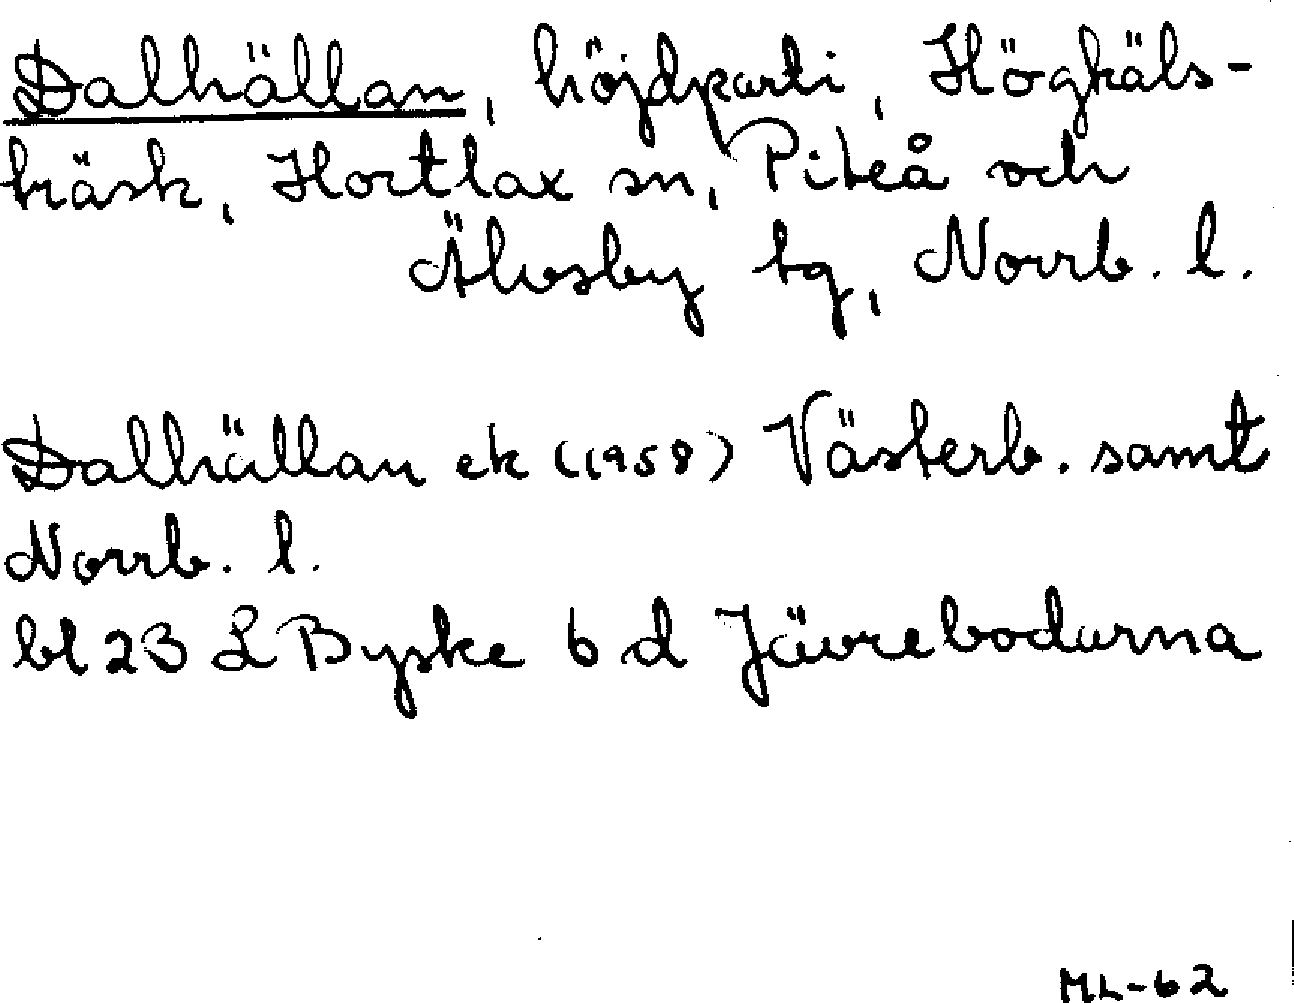 Dalhällan, höjdparti, Högkäls-
träsk, Hortlax sn, Piteå och
Älvsby tg, Norrb. l.
Dalhällan ek (1958) Västerb. samt
Norrb. l.
bl 23 L Byske 6 d Jävrebodarna
ML-62